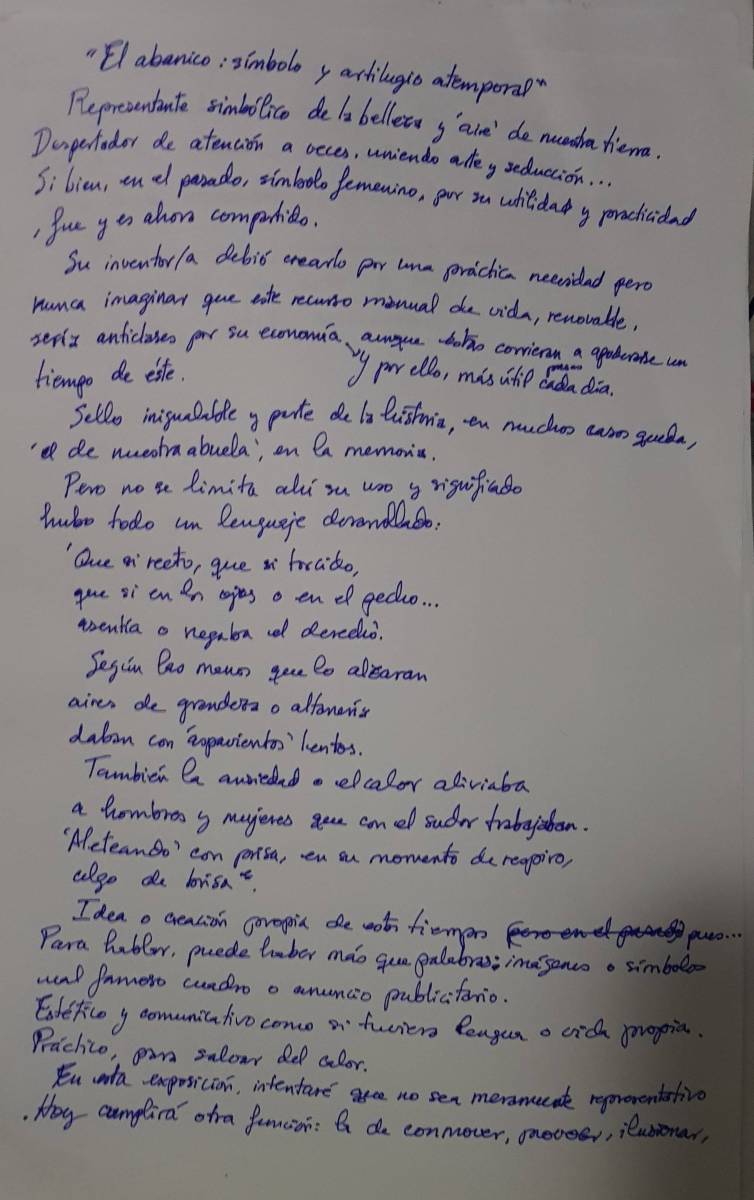 "El abanico: símbolo y artilugio atemporal"
Representante simbólico de la belleza y 'aire' de nuestra tierra.
Despertador de atención a veces, uniendo arte y seducción...
Si bien, en el pasado, símbolo femenino, por su utilidad y practicidad
, fue y es ahora compartido.
Su inventor/a debió crearlo por una práctica necesidad pero
nunca imaginar que este recurso manual de vida, renovable,
sería anticlases por su economía, aunque estas corrieran a apoderarse un
tiempo de éste. y por ello, más útil pasen cada día.
Sello inigualable y parte de la historia, en muchos casos queda,
'el de nuestra abuela', en la memoria.
Pero no se limita ahí su uso y significado
hubo todo un lenguaje desarrollado:
'Que si recto, que si torcido,
que si en los ojos o en el pecho...
asentía o negaba el derecho'.
Según las manos que lo alzaran
aires de grandeza o altanería
daban con 'aspavientos' lentos.
También la ansiedad o el calor aliviaba
a hombres y mujeres que con el sudor trabajaban.
'Aleteando' con prisa, en su momento de respiro,
algo de brisa".
Idea o creación propia de estos tiempos pero en el pasado pues...
Para hablar, puede haber más que palabras: imágenes o símbolos
cual famoso cuadro o anuncio publicitario.
Estético y comunicativo como si tuviera lengua o vida propia.
Práctico, para salvar del calor.
En esta exposición, intentaré que no sea meramente representativo
. Hoy cumplirá otra función: la de conmover, proveer, ilusionar,